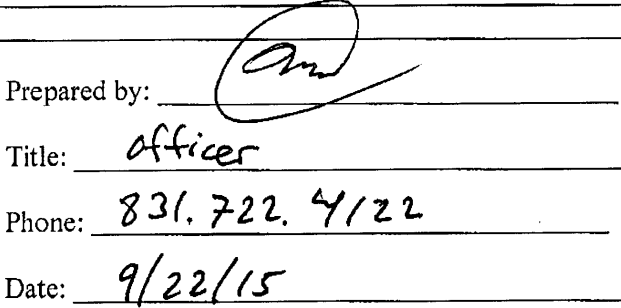 Prepared by:
Title: officer
Phone: 831. 722. 4122
Date: 9/22/15